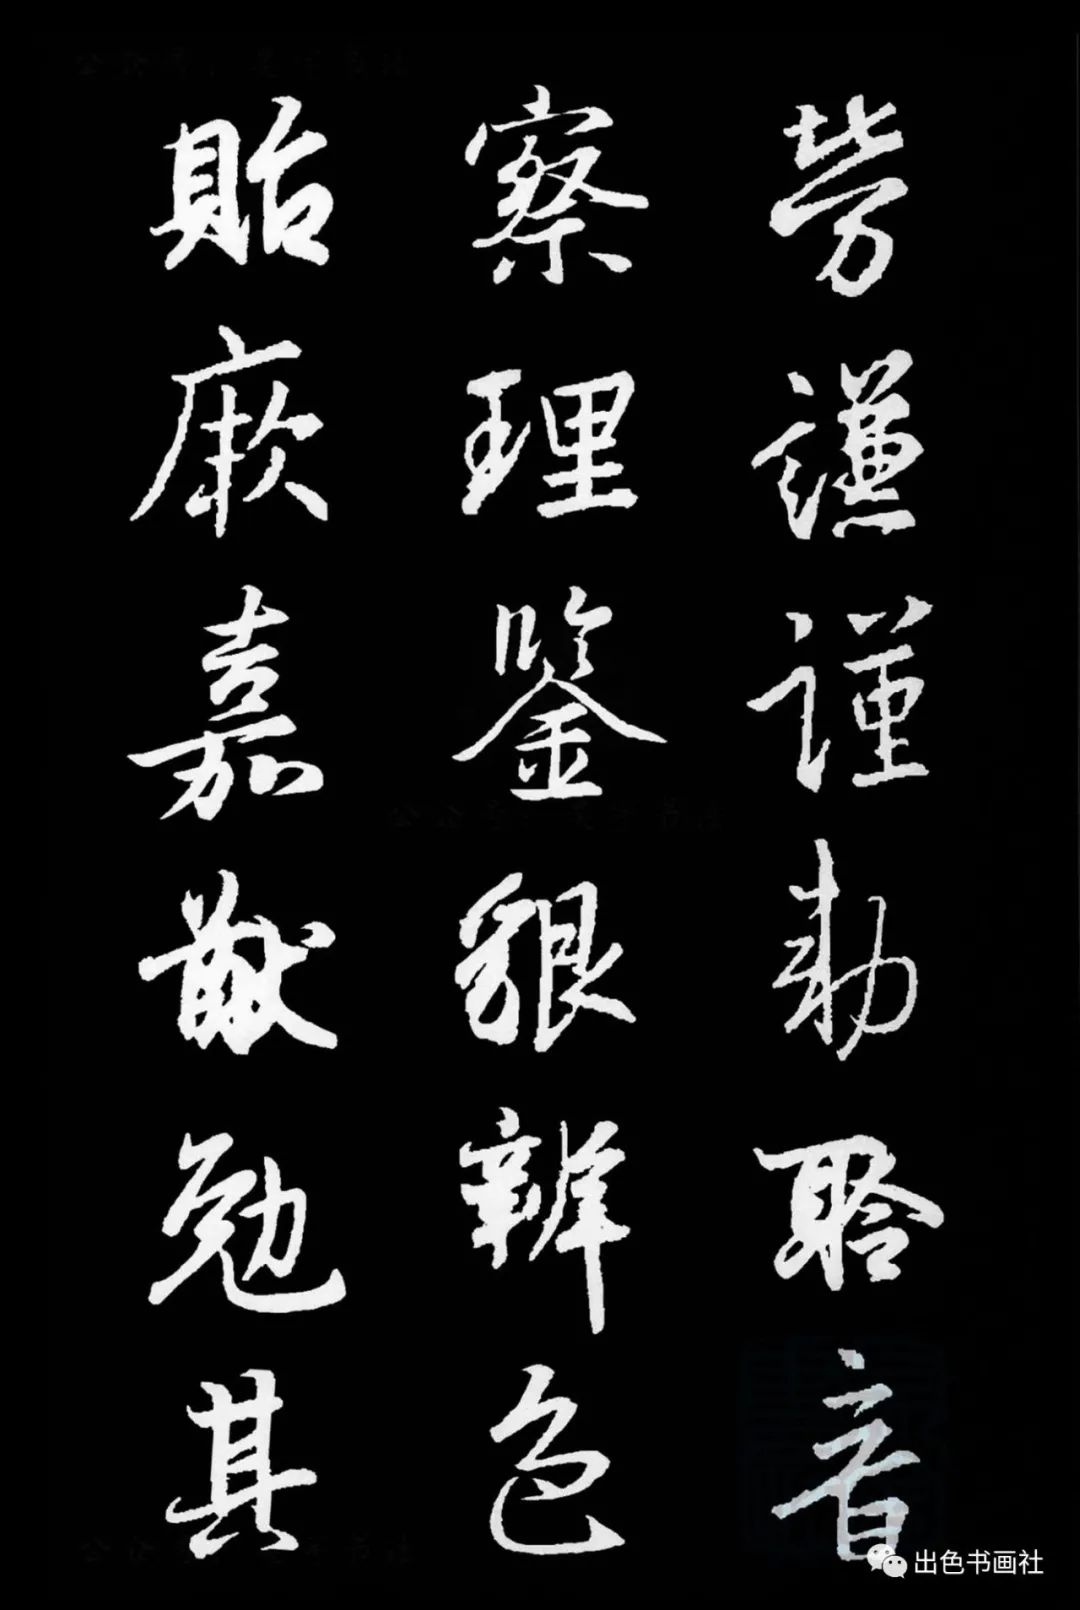 劳謙謹勅聆音
察理鑒貌辨色
貽厥嘉猷勉其
出色书画社